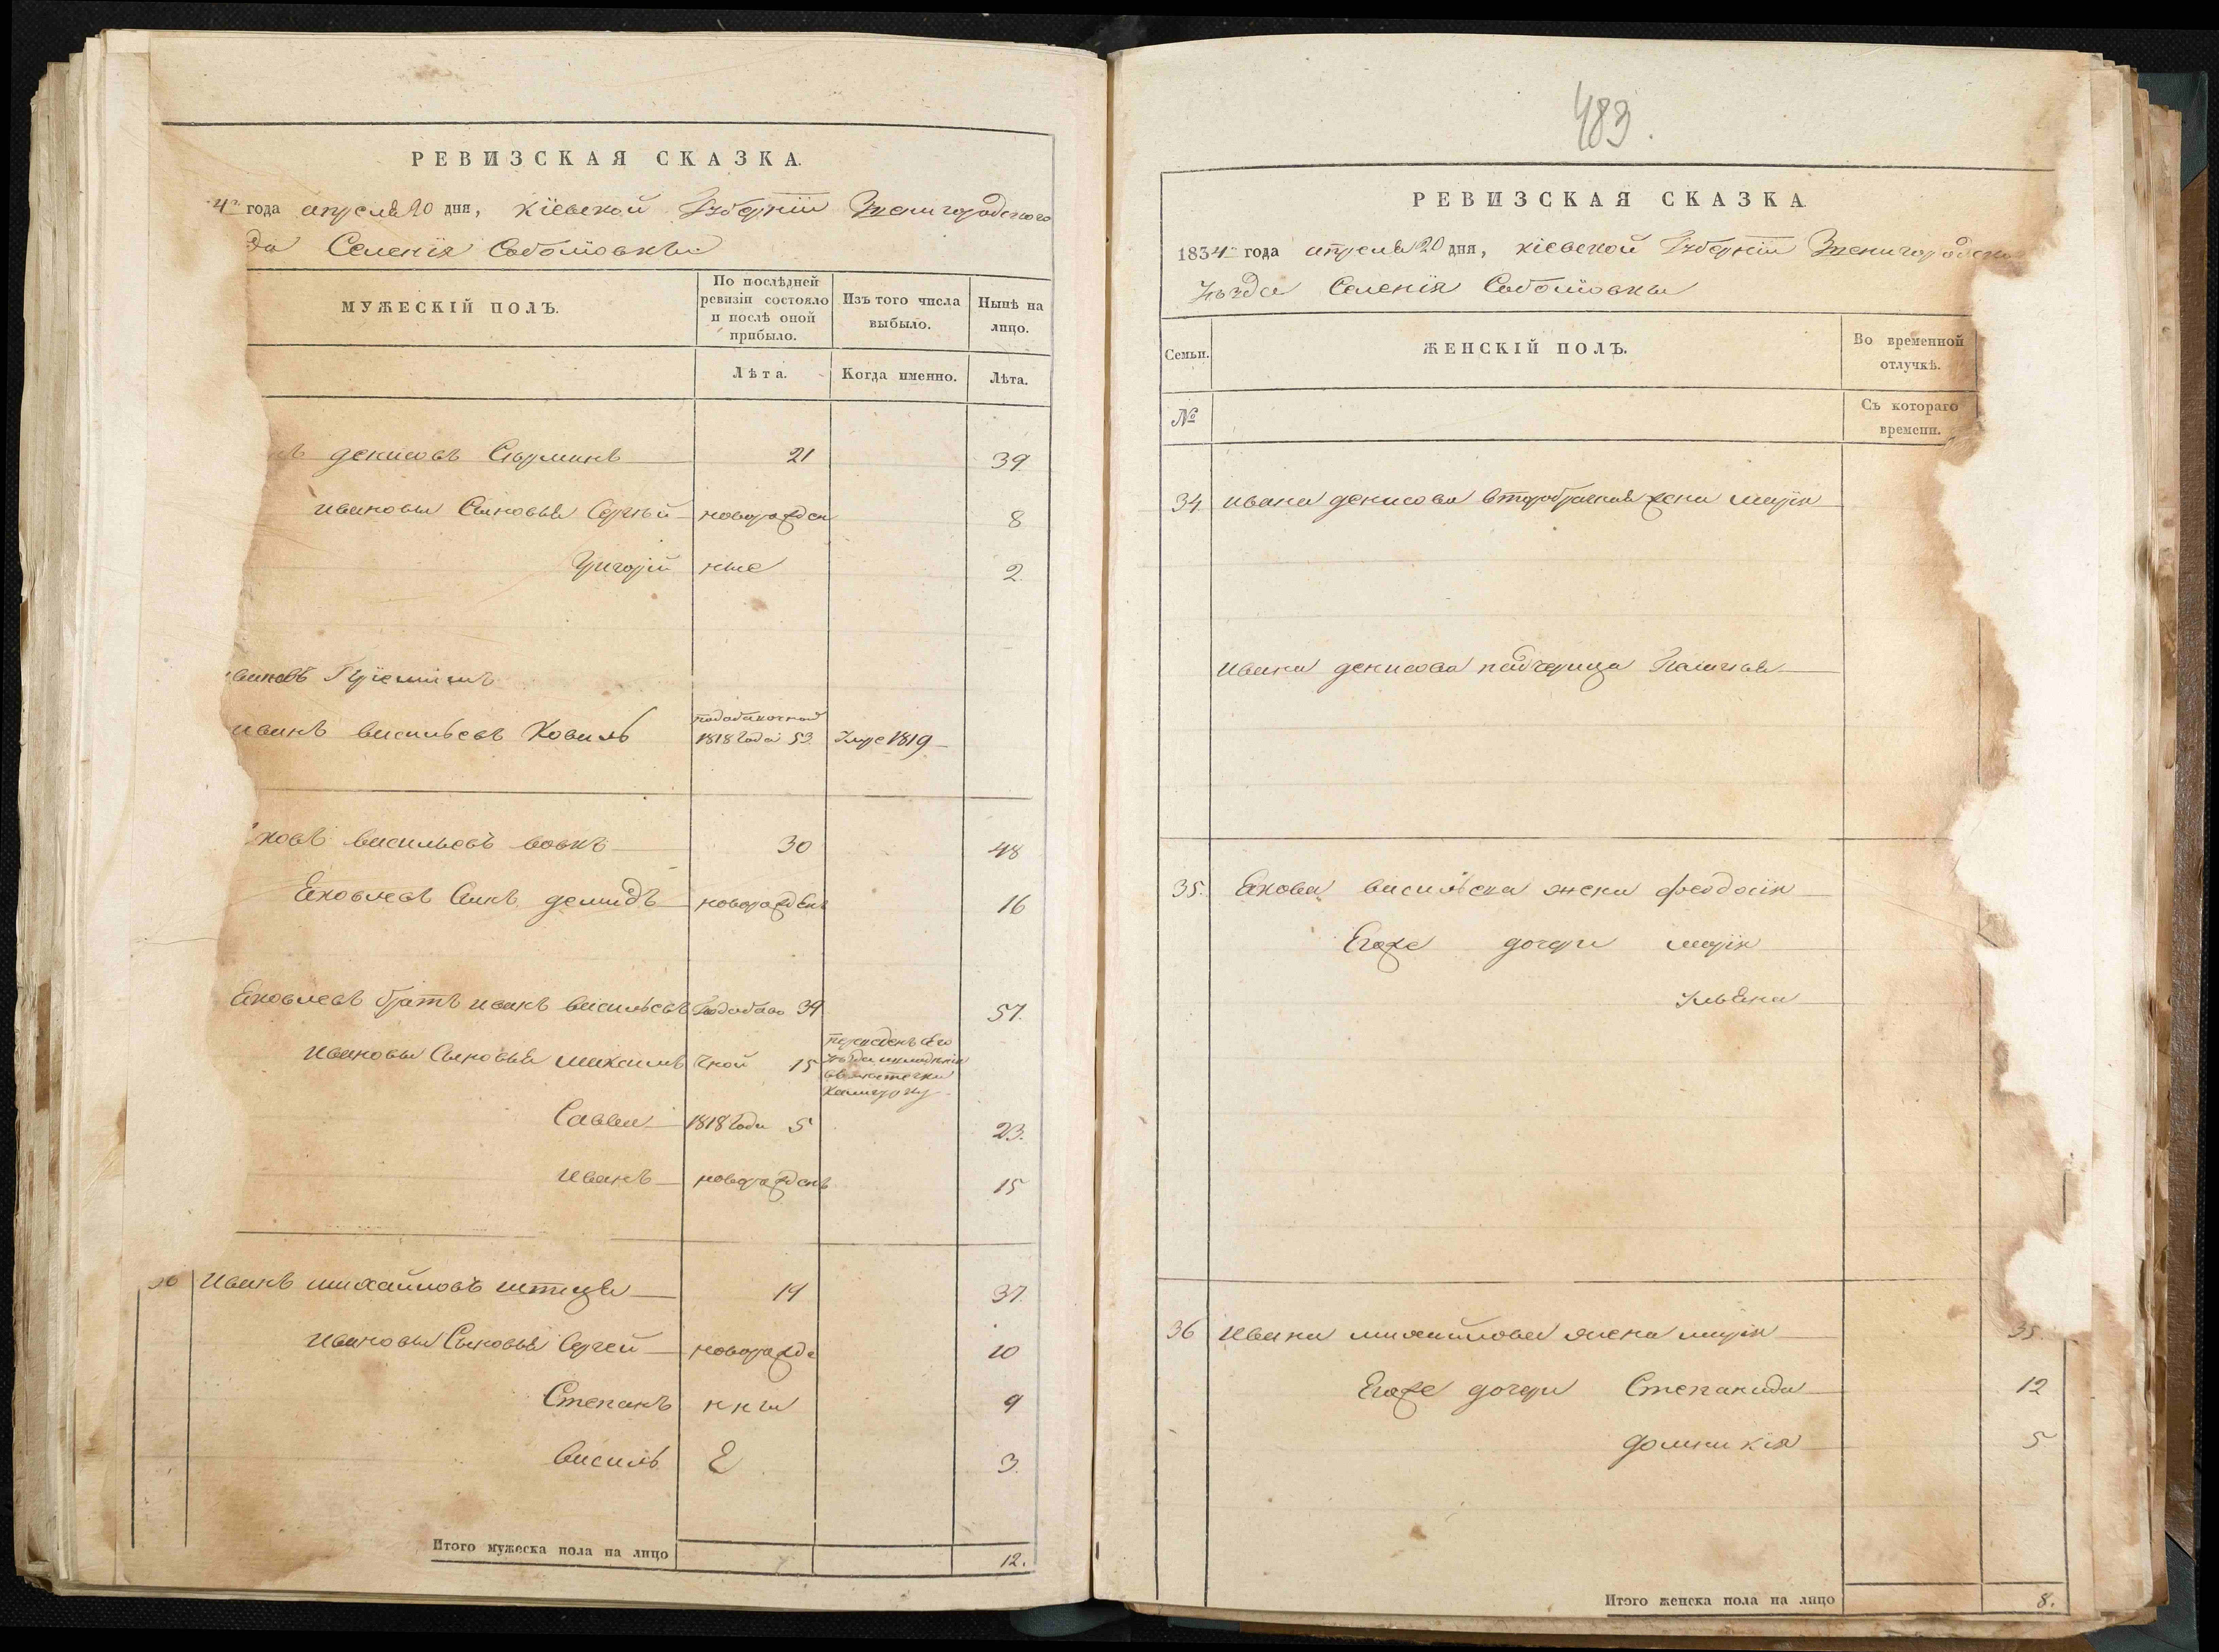 РЕВИЗСКАЯ СКАЗКА.
4го года апреля 20 дня, Кіевской Губерніи Звенигородского
да Селенія Соболіовки
МУЖЕСКІЙ ПОЛЪ.
По послѣдней ревизіи состояло и послѣ оной прибыло.
Изъ того числа выбыло.
Нынѣ на лицо.
Лѣта.
Когда именно.
Лѣта.
денисовъ 21 39
Ивановы Сыновья Сергѣй новорожден 8
Григорій ные 2
Иванъ васильевъ Коваль 1818 года 53 Умре 1819
ковъ васильевъ вовкъ 30 48
Ековлевъ Сынъ демидъ новорожденъ 16
Ековлевъ братъ иванъ васильевъ 39 57.
Ивановы Сыновья михаилъ чной 15
Савва 1818 года 5 23.
иванъ новорожденъ 15
36 Иванъ михайловъ 19 37.
Ивановы Сыновья Сергей новорожде 10
Степанъ нны 9
василь Е 3.
Итого мужеска пола на лицо 12.
483.
РЕВИЗСКАЯ СКАЗКА
1834го года апреля 20 дня, Кіевской Губерніи Звенигородско
уѣзда Селенія Соболіовки
Семьи.
ЖЕНСКІЙ ПОЛЪ.
Во временной отлучкѣ.
№
Съ котораго времени.
34 ивана денисова второбрачная жена марія
ивана денисова падчерица Палагея
35. Екова васильева жена феодосія
Егоже дочери марія
Ульяна
36 Ивана михайлова жена марія 35.
Егоже дочери Степанида 12
домникія 5
Итого женска пола на лицо 8.